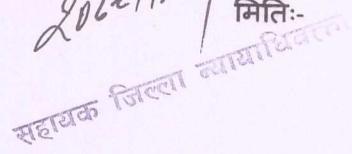 मितिः-
सहायक जिल्ला न्यायाधिवक्ता